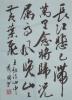 長江悲已滯
萬里念將歸
況屬高風晚山
山黃葉飛